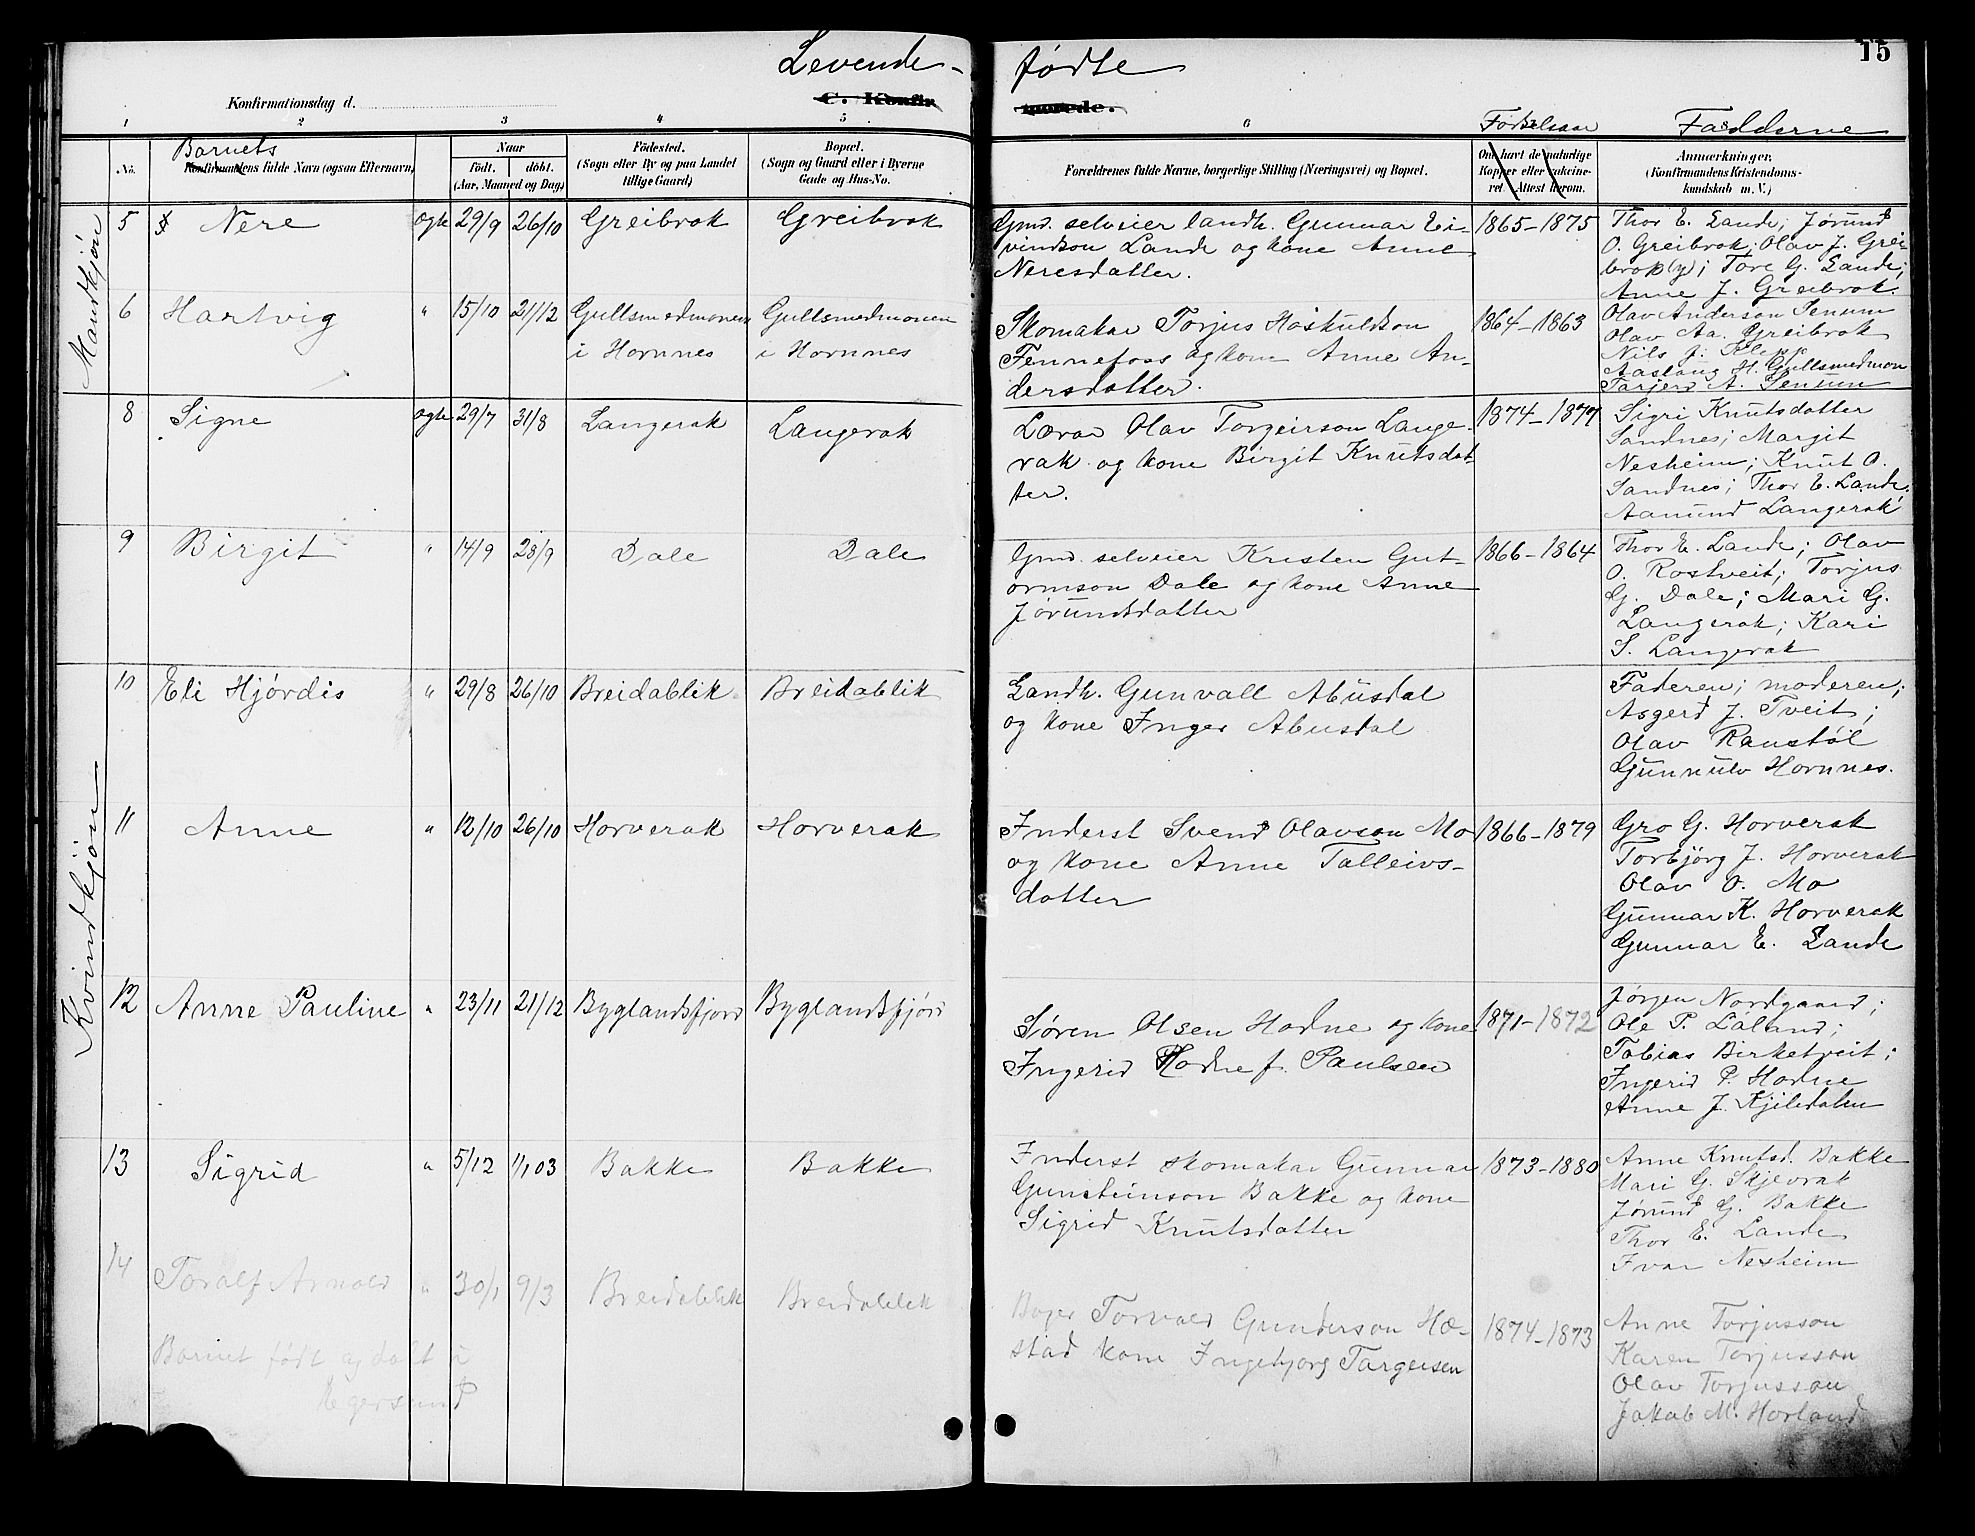 Levende-
fødte
15
Konfirmationsdag d.
C. Konfir
merede.
1
2
3
4
5
6
Fødselsaar
Fadderne
Barnets
No.
Konfirmandens fulde Navn (ogsaa Efternavn)
Naar
född.
döbt.
(Aar, Maaned og Dag)
Födested.
(Sogn eller By og paa Landet
tillige Gaard)
Bopæl.
(Sogn og Gaard eller i Byerne
Gade og Hus-No.
Forældrenes fulde Navne, borgerlige Stilling (Næringsvei) og Bopæl.
Om havt de naturlige
Kopper eller vakcine-
ret. Attest herom.
Anmærkninger.
(Konfirmandens Kristendoms-
kundskab m. V.)
Mandkjøn
5 Nere ogte 29/9 26/10 Greibrok Greibrok
Gmd. selveier landh. Gunnar Ei-
vindson Lande og kone Anne
Neresdatter.
1865-1875
Thor E. Lande; Jørund
O. Greibrok; Olav J. Grei
brok(y); Tore G. Lande;
Anne J. Greibrok.
6 Hartvig " 15/10 21/12 Gullsmedmonen Gullsmedmonen
i Hornnes i Hornnes
Skomakar Torjus Høskuldson
Fennefoss og kone Anne An-
dersdatter.
1864-1863
Olav Anderson Senum
Olav Aa. Greibrok
Nils J. Kleppe
Aaslaug H. Gullsmedmon
Tarjerd A. Senum
Kvindkjøn
8 Signe ogte 29/7 31/8 Langerak Langerak
Lærar Olav Torgeirson Lange-
rak og kone Birgit Knutsdat-
ter.
1874-1877
Sigri Knutsdatter
Sandnes; Margit
Nesheim; Knut O.
Sandnes; Thor E. Lande.
Aanund Langerak
9 Birgit " 14/9 28/9 Dale Dale
Gmd. selveier Kristen Gut-
ormson Dale og kone Anne
Jørundsdatter
1866-1864
Thor E. Lande; Olav
O. Rostveit; Torjus
G. Dale; Mari G.
Langerak; Kari
S. Langerak
10 Eli Hjørdis " 29/8 26/10 Breidablik Breidablik
Landh. Gunvall Abusdal
og kone Inger Abusdal
Faderen; moderen;
Asgerd J. Tveit;
Olav Ranstøl
Gunnulv Hornnes.
11 Anne " 12/10 26/10 Horverak Horverak
Inderst Svend Olavson Mo
og kone Anne Talleivs-
datter
1866-1879
Gro G. Horverak
Torbjörg J. Horverak
Olav O. Mo
Gunnar K. Horverak
Gunnar E. Lande
12 Anne Pauline " 23/11 21/12 Byglandsfjord Byglandsfjord
Søren Olsen Hodne og kone
Ingerid Hodne f. Paulsen
1871-1872
Jørjen Nordgaard;
Ole P. Løland;
Tobias Birketveit;
Ingerid P. Hodne
Anne J. Kjiledalen
13 Sigrid " 5/12 1/1 03 Bakke Bakke
Inderst skomakar Gunnar
Gunsteinson Bakke og kone
Sigrid Knutsdatter
1873-1880
Anne Knutsd. Bakke
Mari G. Skjevrak
Jørund G. Bakke
Thor E. Lande
Ivar Nesheim
14 Toralf Arnold " 30/1 9/3 Breidablik Breidablik
Barnet født og døbt i
Egersund
Torvald Gunderson Hæ-
stad kone Ingebjorg Targersen
1874-1873
Anne Torjusson
Karen Torjusson
Olav Torjusson
Jakob M. Horland